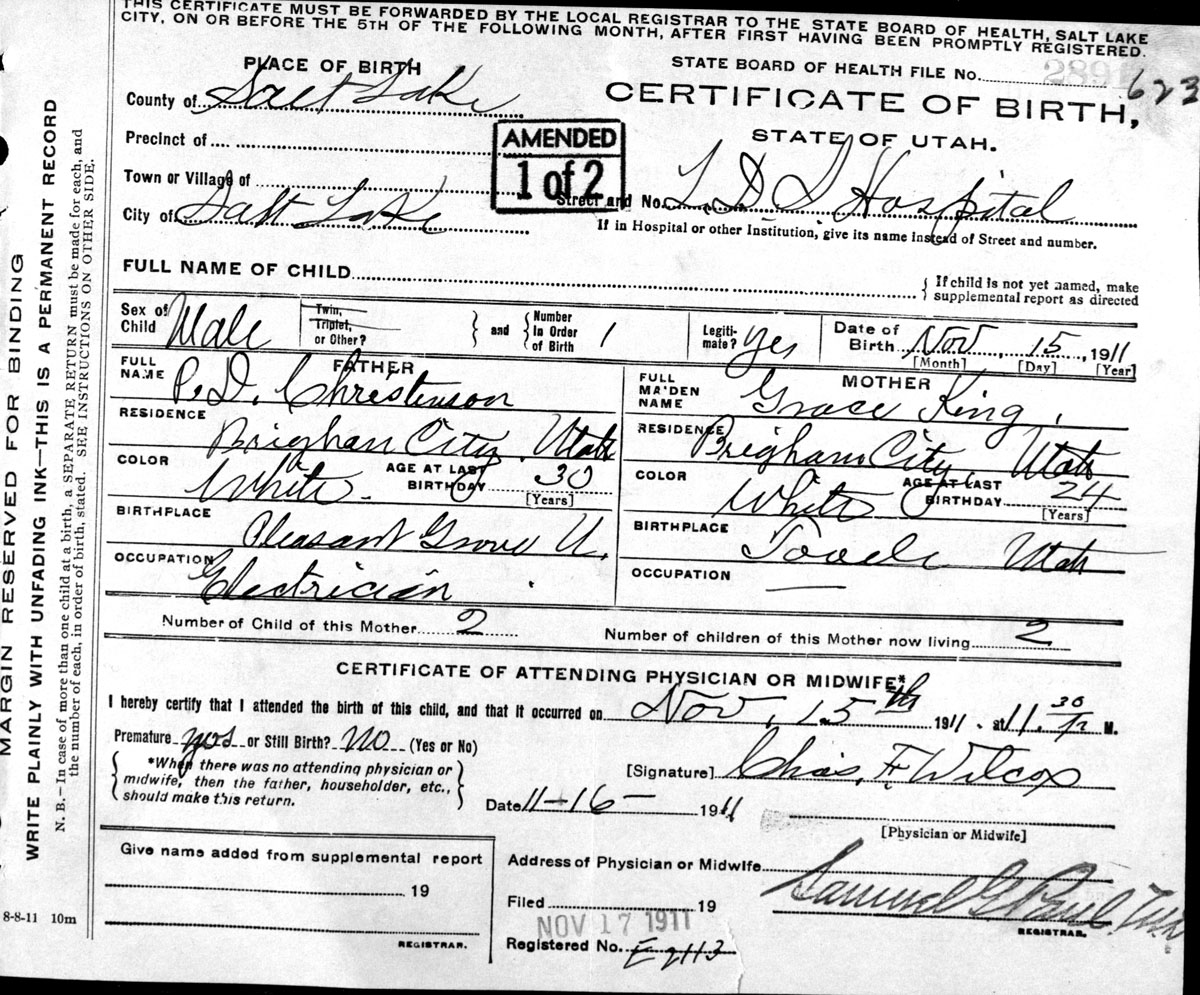 THIS CERTIFICATE MUST BE FORWARDED BY THE LOCAL REGISTRAR TO THE STATE BOARD OF HEALTH, SALT LAKE
CITY, ON OR BEFORE THE 5TH OF THE FOLLOWING MONTH, AFTER FIRST HAVING BEEN PROMPTLY REGISTERED.
PLACE OF BIRTH
STATE BOARD OF HEALTH FILE No. 623
County of Salt Lake
CERTIFICATE OF BIRTH,
STATE OF UTAH.
Precinct of
AMENDED
1 of 2
Town or Village of
Street and No. L D S Hospital
City of Salt Lake
If in Hospital or other Institution, give its name instead of Street and number.
FULL NAME OF CHILD
If child is not yet named, make
supplemental report as directed
Sex of Child Male
Twin, Triplet, or Other?
and
Number In Order of Birth 1
Legiti-mate? Yes
Date of Birth Nov, 15, 1911
[Month] [Day] [Year]
FATHER
FULL NAME P. D. Christenson
RESIDENCE
Brigham City, Utah
COLOR White
AGE AT LAST BIRTHDAY 30
[Years]
BIRTHPLACE
Pleasant Grove U.
OCCUPATION
Electrician
MOTHER
FULL MAIDEN NAME Grace King
RESIDENCE
Brigham City, Utah
COLOR White
AGE AT LAST BIRTHDAY 24
[Years]
BIRTHPLACE
Tooele Utah
OCCUPATION —
Number of Child of this Mother 2
Number of children of this Mother now living 2
CERTIFICATE OF ATTENDING PHYSICIAN OR MIDWIFE*
I hereby certify that I attended the birth of this child, and that it occurred on Nov, 15th 1911. at 11.30 P. M.
Premature yes or Still Birth? No (Yes or No)
*When there was no attending physician or
midwife, then the father, householder, etc.,
should make this return.
[Signature] Chas. F Wilcox
Date 11-16- 1911
[Physician or Midwife]
Give name added from supplemental report
19
REGISTRAR.
Address of Physician or Midwife
Filed 19
NOV 17 1911
Samuel G Paul
REGISTRAR.
Registered No.
8-8-11 10m
MARGIN RESERVED FOR BINDING
WRITE PLAINLY WITH UNFADING INK—THIS IS A PERMANENT RECORD
N. B.—In case of more than one child at a birth, a SEPARATE RETURN must be made for each, and
the number of each, in order of birth, stated. SEE INSTRUCTIONS ON OTHER SIDE.